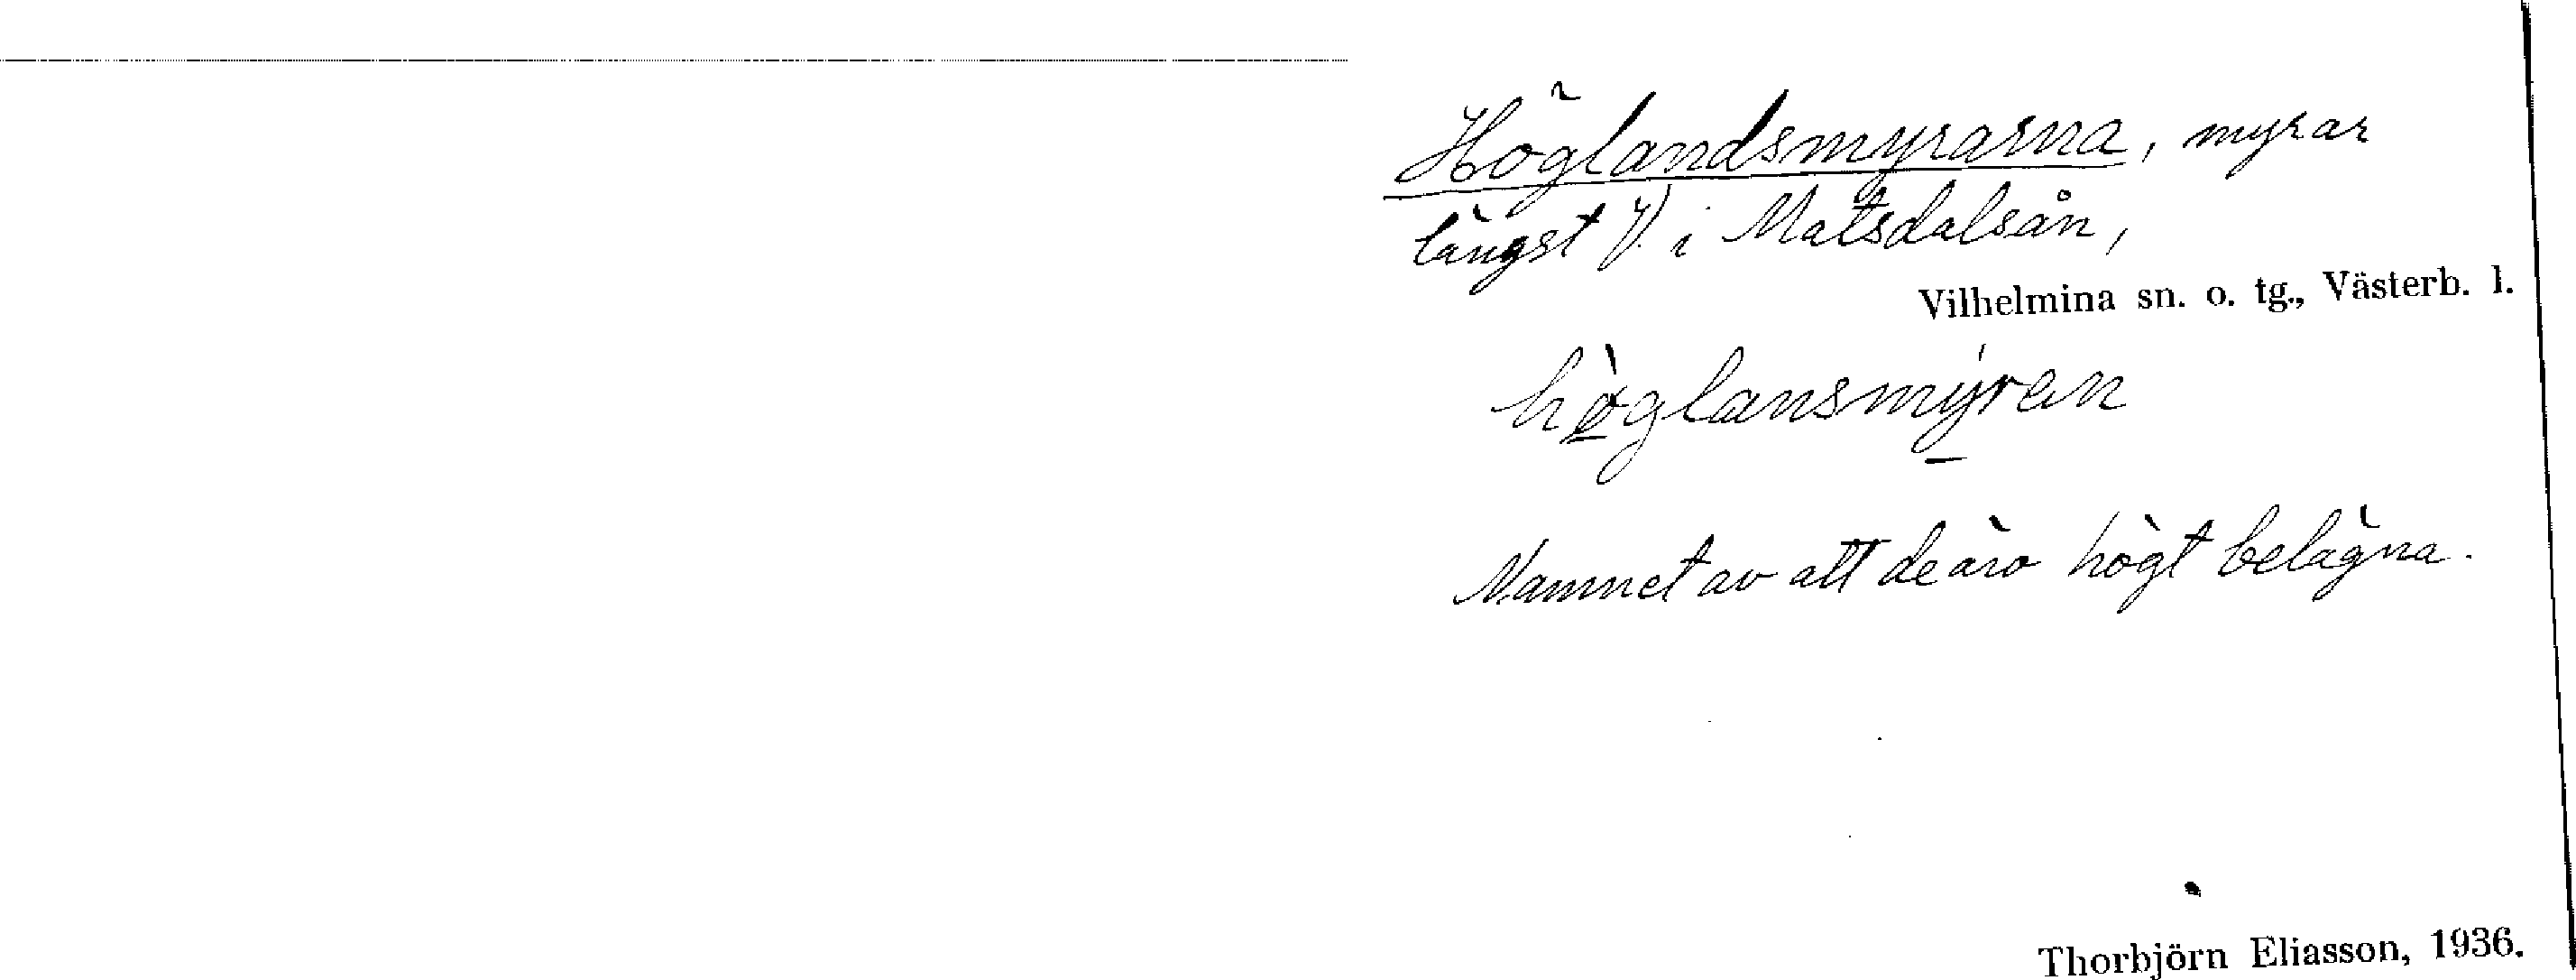 Höglandsmyrarna, myrar
längst V. i Matsdalsån,
Vilhelmina sn. o. tg., Västerb. l.
hø̀glansmýran
Namnet av att de äro högt belägna.
Thorbjörn Eliasson, 1936.